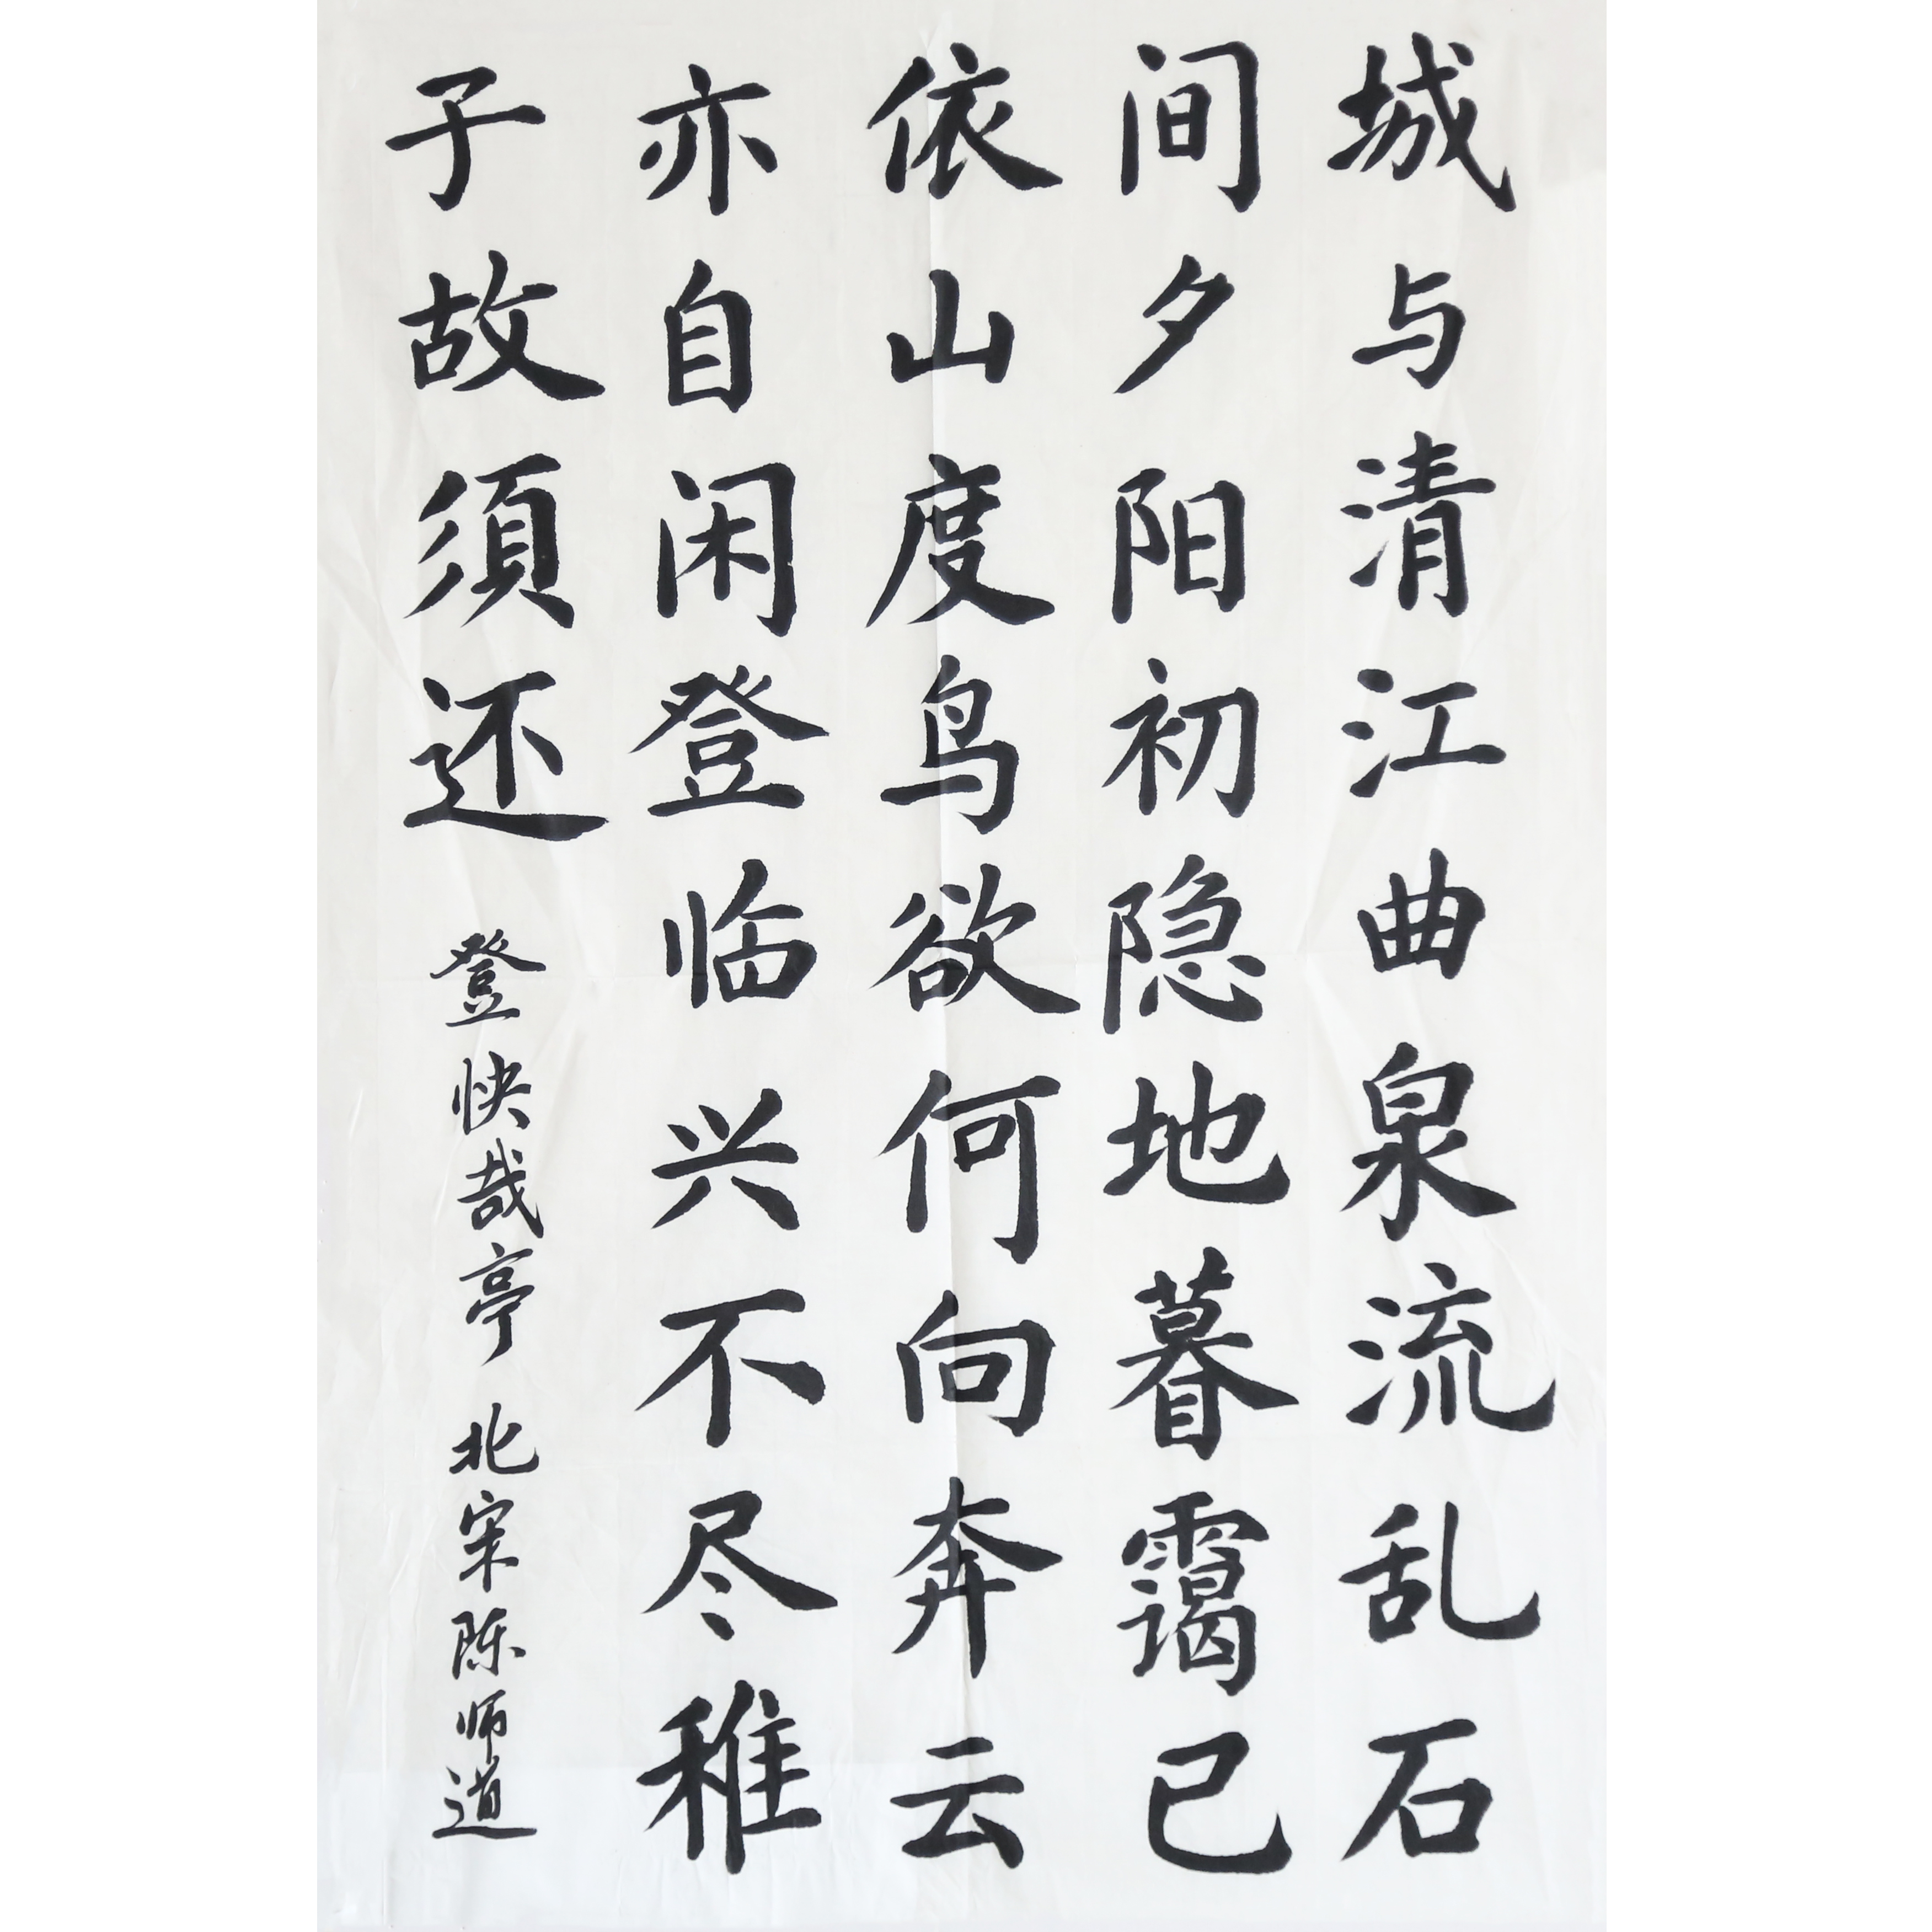 城与清江曲泉流乱石
间夕阳初隐地暮霭已
依山度鸟欲何向奔云
亦自闲登临兴不尽稚
子故須还
登快哉亭 北宋陈师道